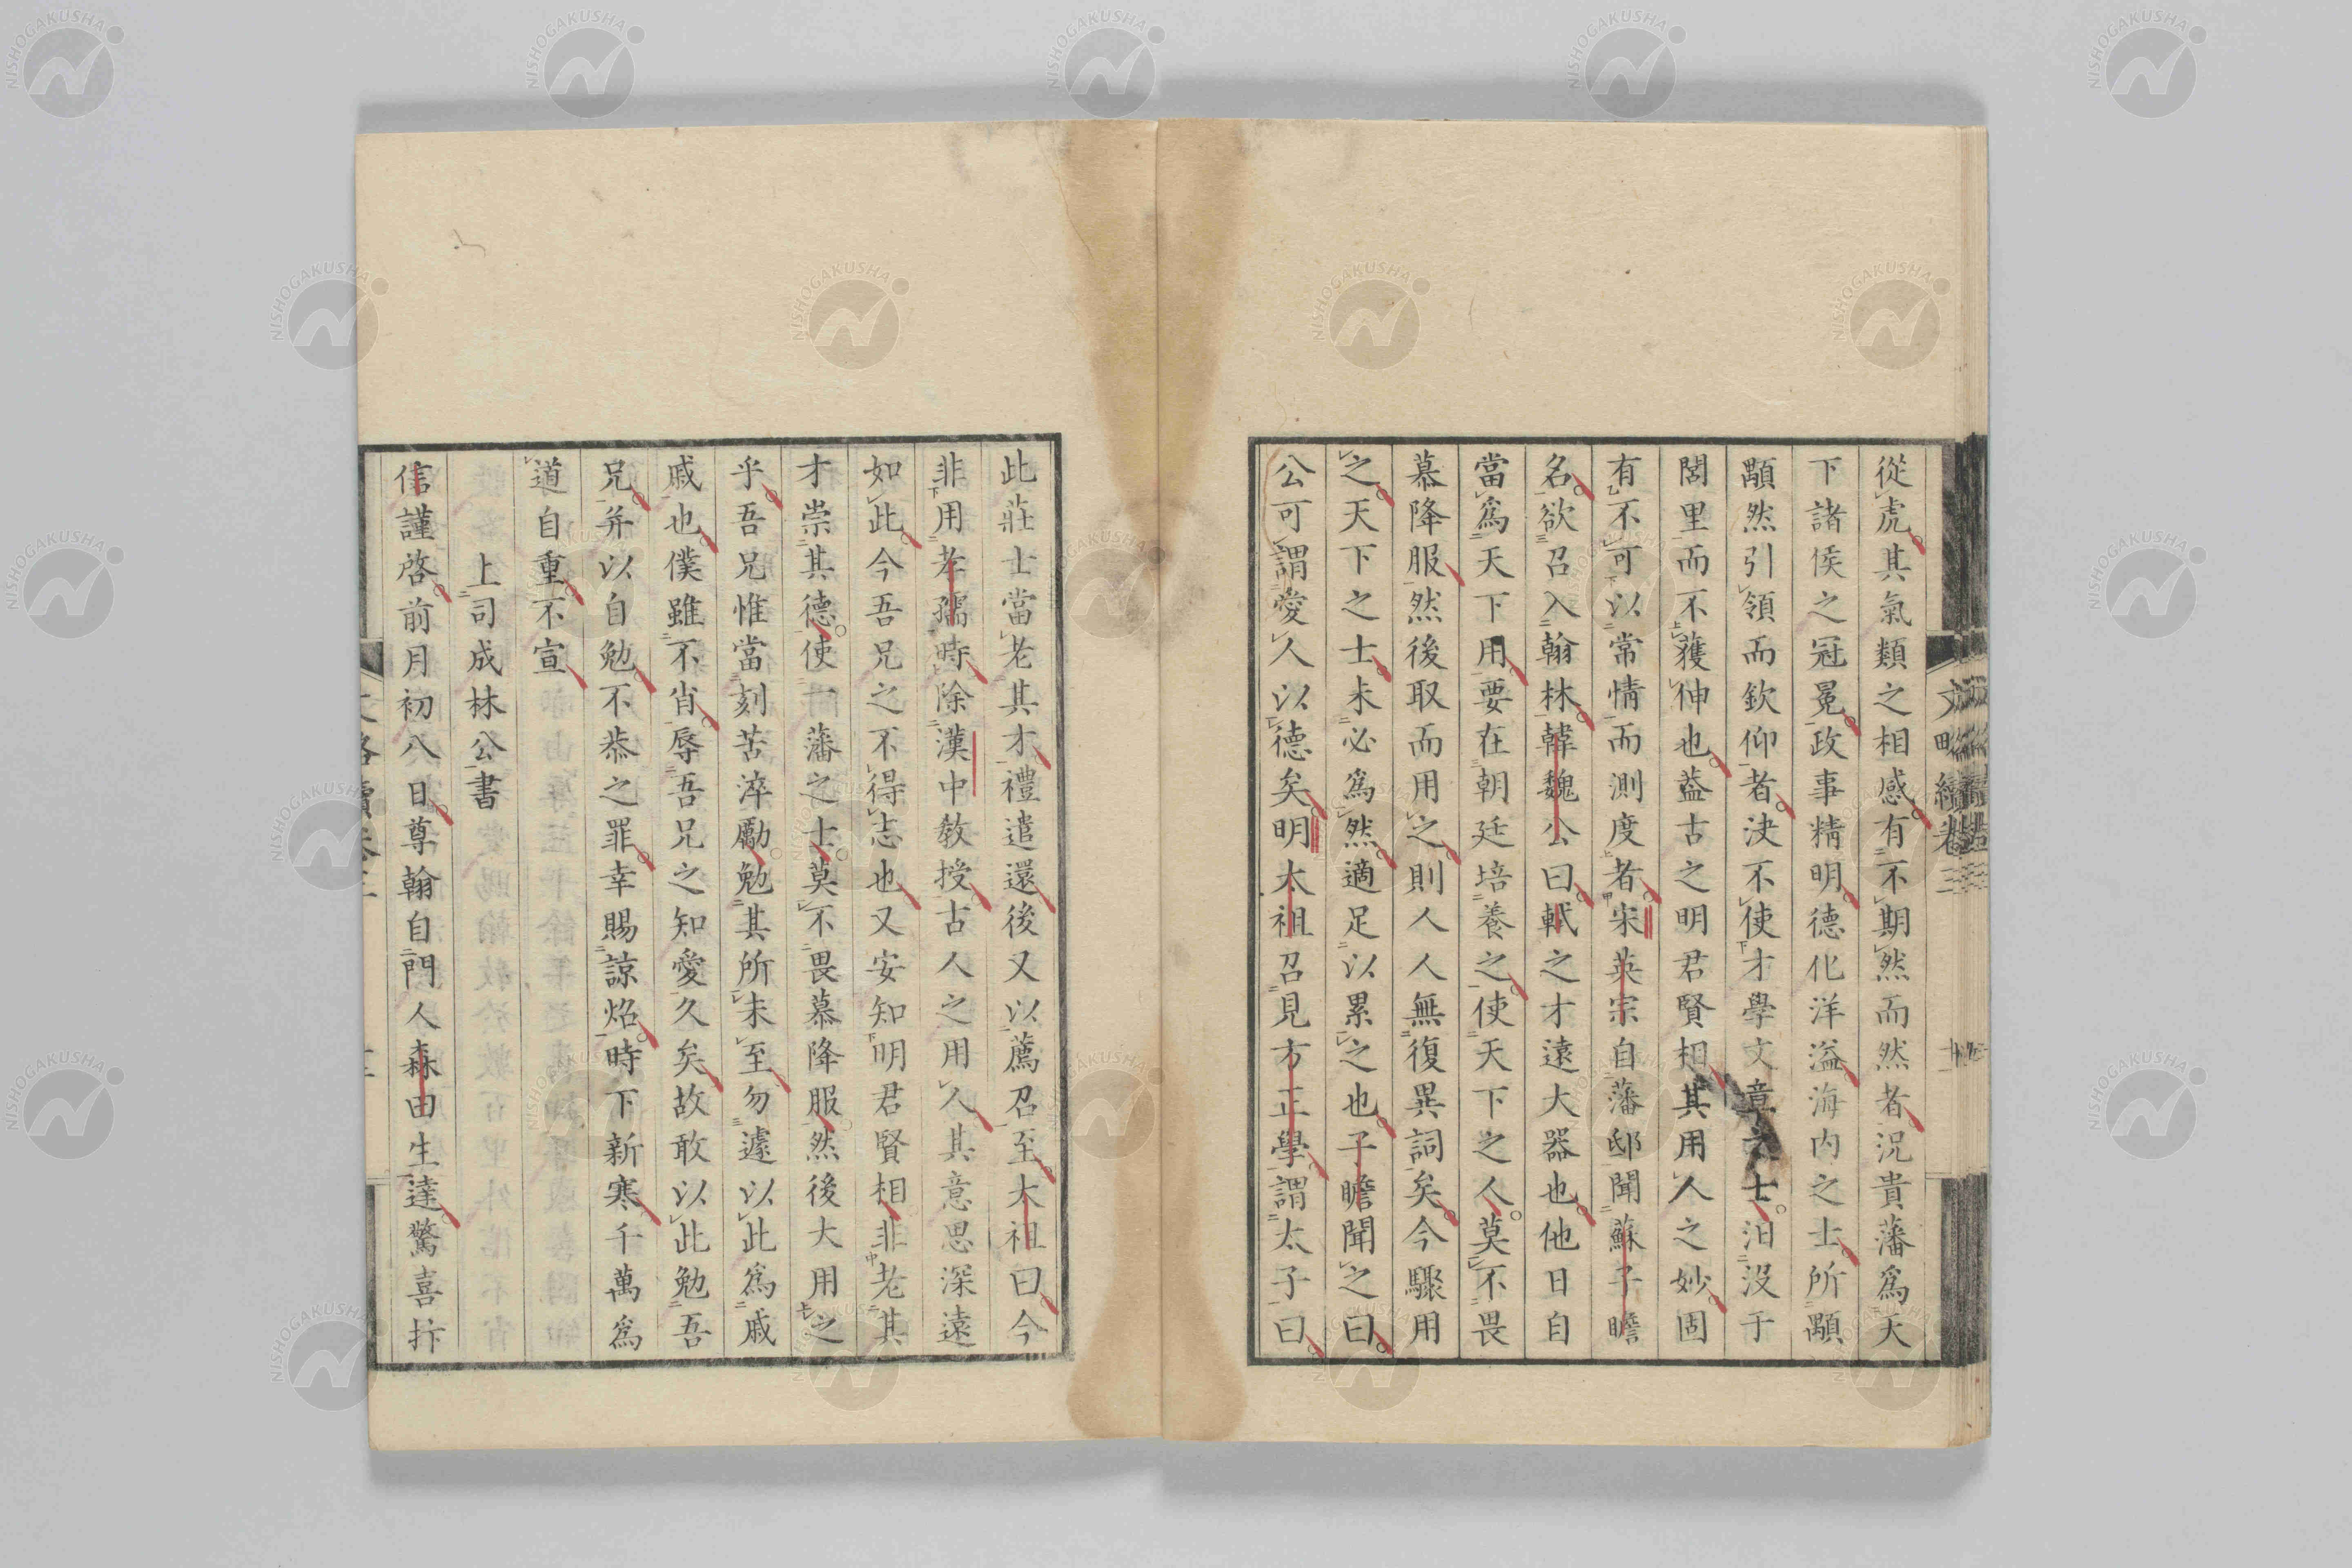 從虎其氣類之相感有不期然而然者況貴藩爲天
下諸侯之冠冕政事精明德化洋溢海內之士所顒
顒然引領而欽仰者決不使才學文章之士汨没于
閭里而不獲伸也葢古之明君賢相其用人之妙固
有不可以常情而測度者宋英宗自藩邸聞蘇子瞻
名欲召入翰林韓魏公曰軾之才遠大器也他日自
當爲天下用要在朝廷培養之使天下之人莫不畏
慕降服然後取而用之則人人無復異詞矣今驟用
之天下之士未必爲然適足以累之也子瞻聞之曰
公可謂愛人以德矣明太祖召見方正學謂太子曰
此莊士當老其才禮遣還後又以薦召至太祖曰今
非用孝孺時除漢中教授古人之用人其意思深遠
如此今吾兄之不得志也又安知明君賢相非老其
才崇其德使藩之士莫不畏慕降服然後大用之
乎吾兄惟當刻苦淬勵勉其所未至勿遽以此爲戚
戚也僕雖不肖辱吾兄之知愛久矣故敢以此勉吾
兄并以自勉不恭之罪幸賜諒炤時下新寒千萬爲
道自重不宣
上司成林公書
信謹啓前月初八日尊翰自門人森田生達驚喜抃
文略續卷三